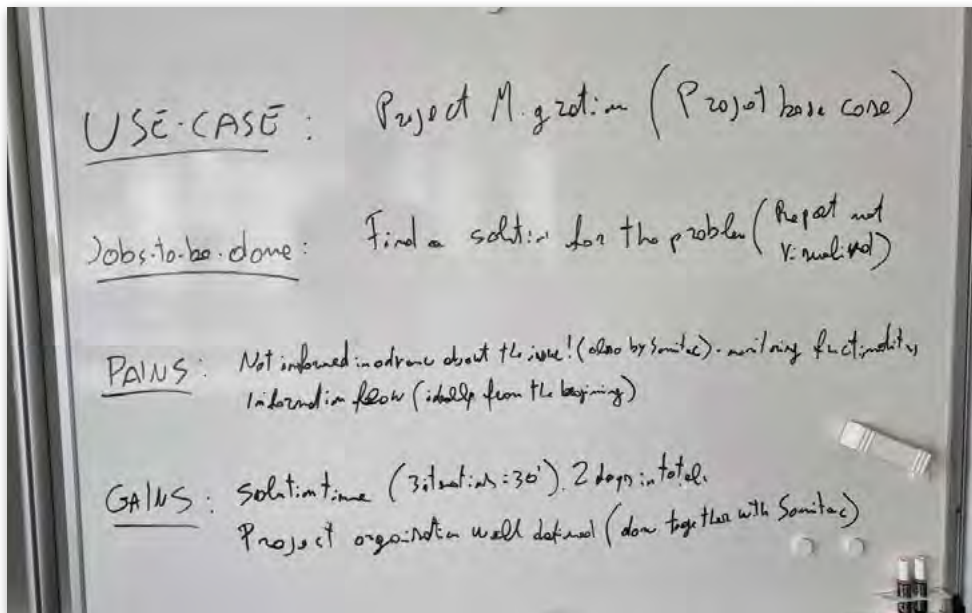 USE-CASE: Project Migration (Projet base case)
Jobs-to-be-done: Find a solution for the problem (Report not
Visualized)
PAINS: Not informed in advance about the issue! (also by Somitec). monitoring functionality,
Information flow (ideally from the beginning)
GAINS: Solution time (3 iterations = 30'). 2 days in total.
Project organisation well defined (done together with Somitec)